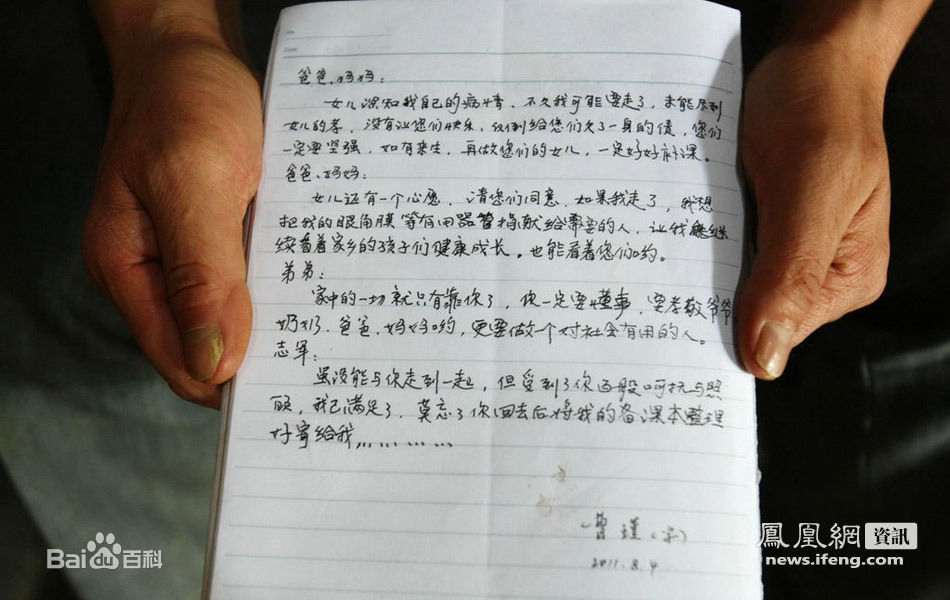 爸爸、妈妈：
女儿深知我自己的病情、不久我可能要走了，未能尽到
女儿的孝，没有让您们快乐、仅倒给您们欠了一身的债，您们
一定要坚强，如有来生，再做您们的女儿，一定好好补课。
爸爸、妈妈：
女儿还有一个心愿，请您们同意，如果我走了，我想
把我的眼角膜等有用器官捐献给需要的人，让我继
续看着家乡的孩子们健康成长，也能看着您们哟。
弟弟：
家中的一切就只有靠你了，你一定要懂事，要孝敬爷爷
奶奶、爸爸、妈妈哟，更要做个对社会有用的人。
志军：
虽没能与你走到一起，但受到了你百般呵抚与照
顾，我已满足了，莫忘了你回去后将我的备课本整理
好寄给我
曹瑾（字）
2011.8.9
Bai百科
鳳凰網 資訊
news.ifeng.com